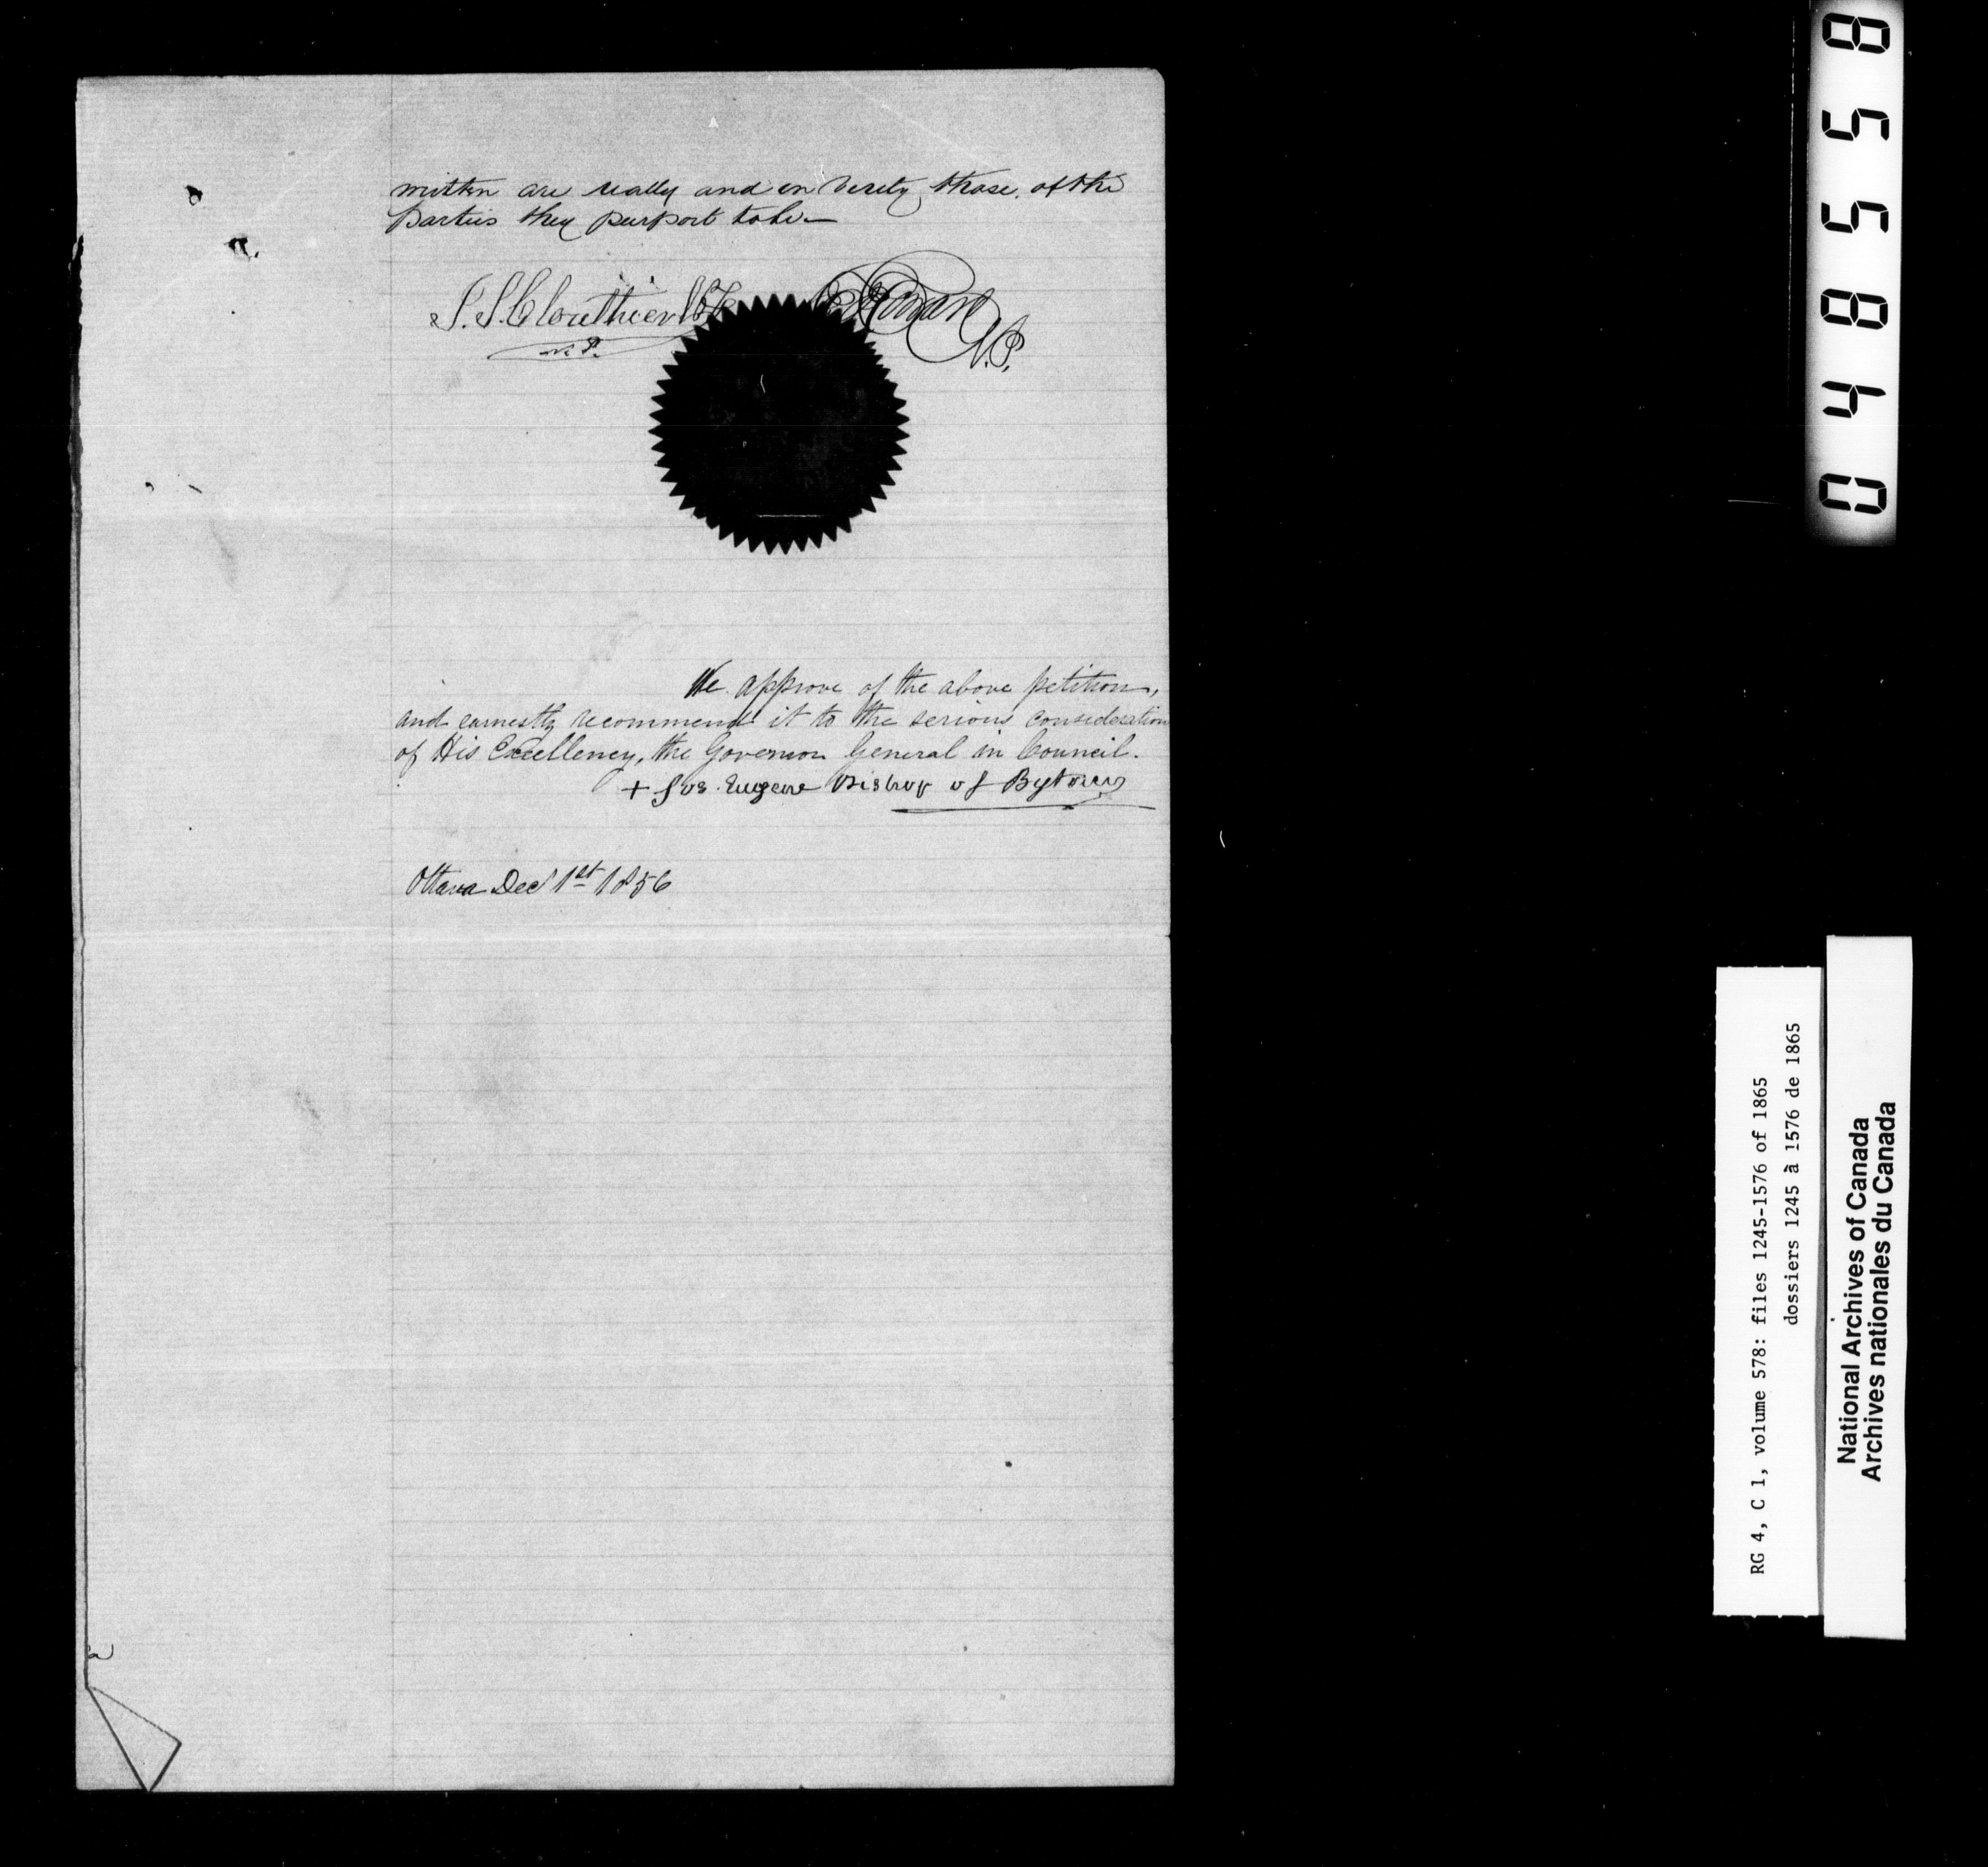 written are really and in verity those of the
Parties they purport to be—
J. S. Clouthier
N.P.
N.P.
We approve of the above petition,
and earnestly recommend it to the serious consideration
of His Excellency, the Governor General in Council.
+ Jos. Eugene Bishop of Bytown
Ottawa Decr 1st 1856
048558
RG 4, C 1, volume 578: files 1245-1576 of 1865
dossiers 1245 à 1576 de 1865
National Archives of Canada
Archives nationales du Canada